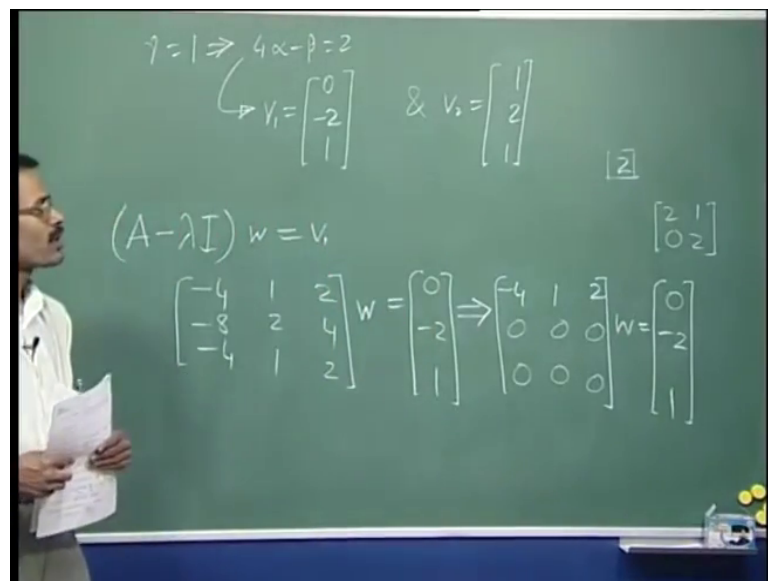 γ = 1 ⇒ 4α − β = 2
V₁ = [0 −2 1] & V₂ = [1 2 1]
[2]
[2 1
0 2]
(A − λI) w = V₁
[−4 1 2
−8 2 4
−4 1 2] w = [0 −2 1] ⇒ [−4 1 2
0 0 0
0 0 0] w = [0 −2 1]